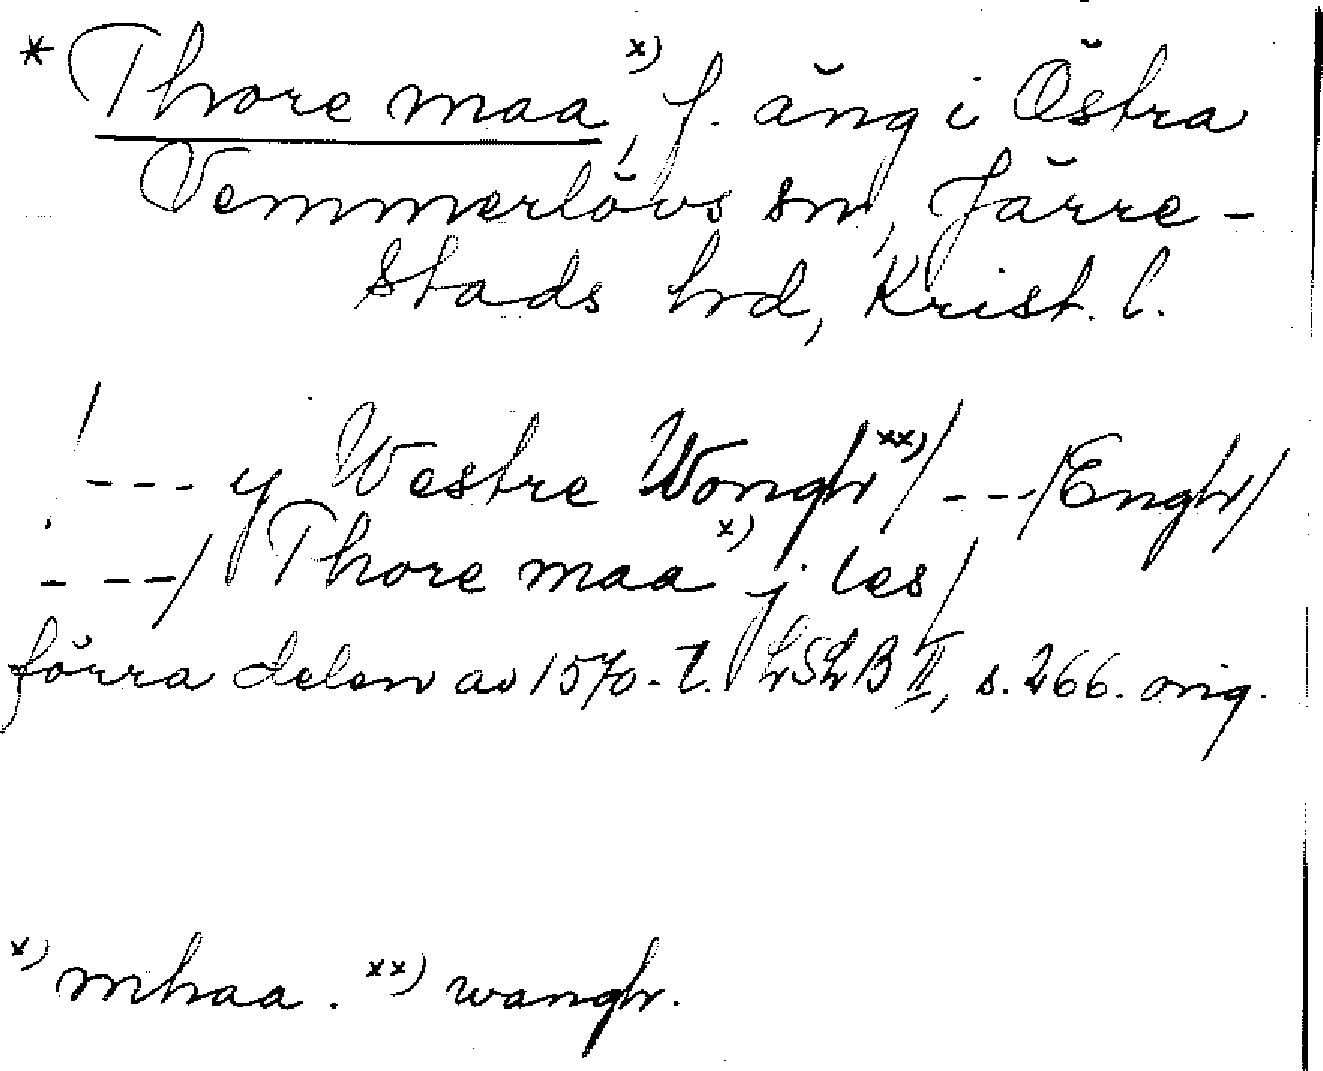 * Thore maa x), f. äng i Östra
Vemmerlövs sn, Järre-
stads hd, Krist. l.
/--- y Westre Wongh xx)/ ---/Engh/
---/ Thore maa x) j les/
förra delen av 1570-t. LSLB II, s. 266. orig.
x) mhaa. xx) wangh.